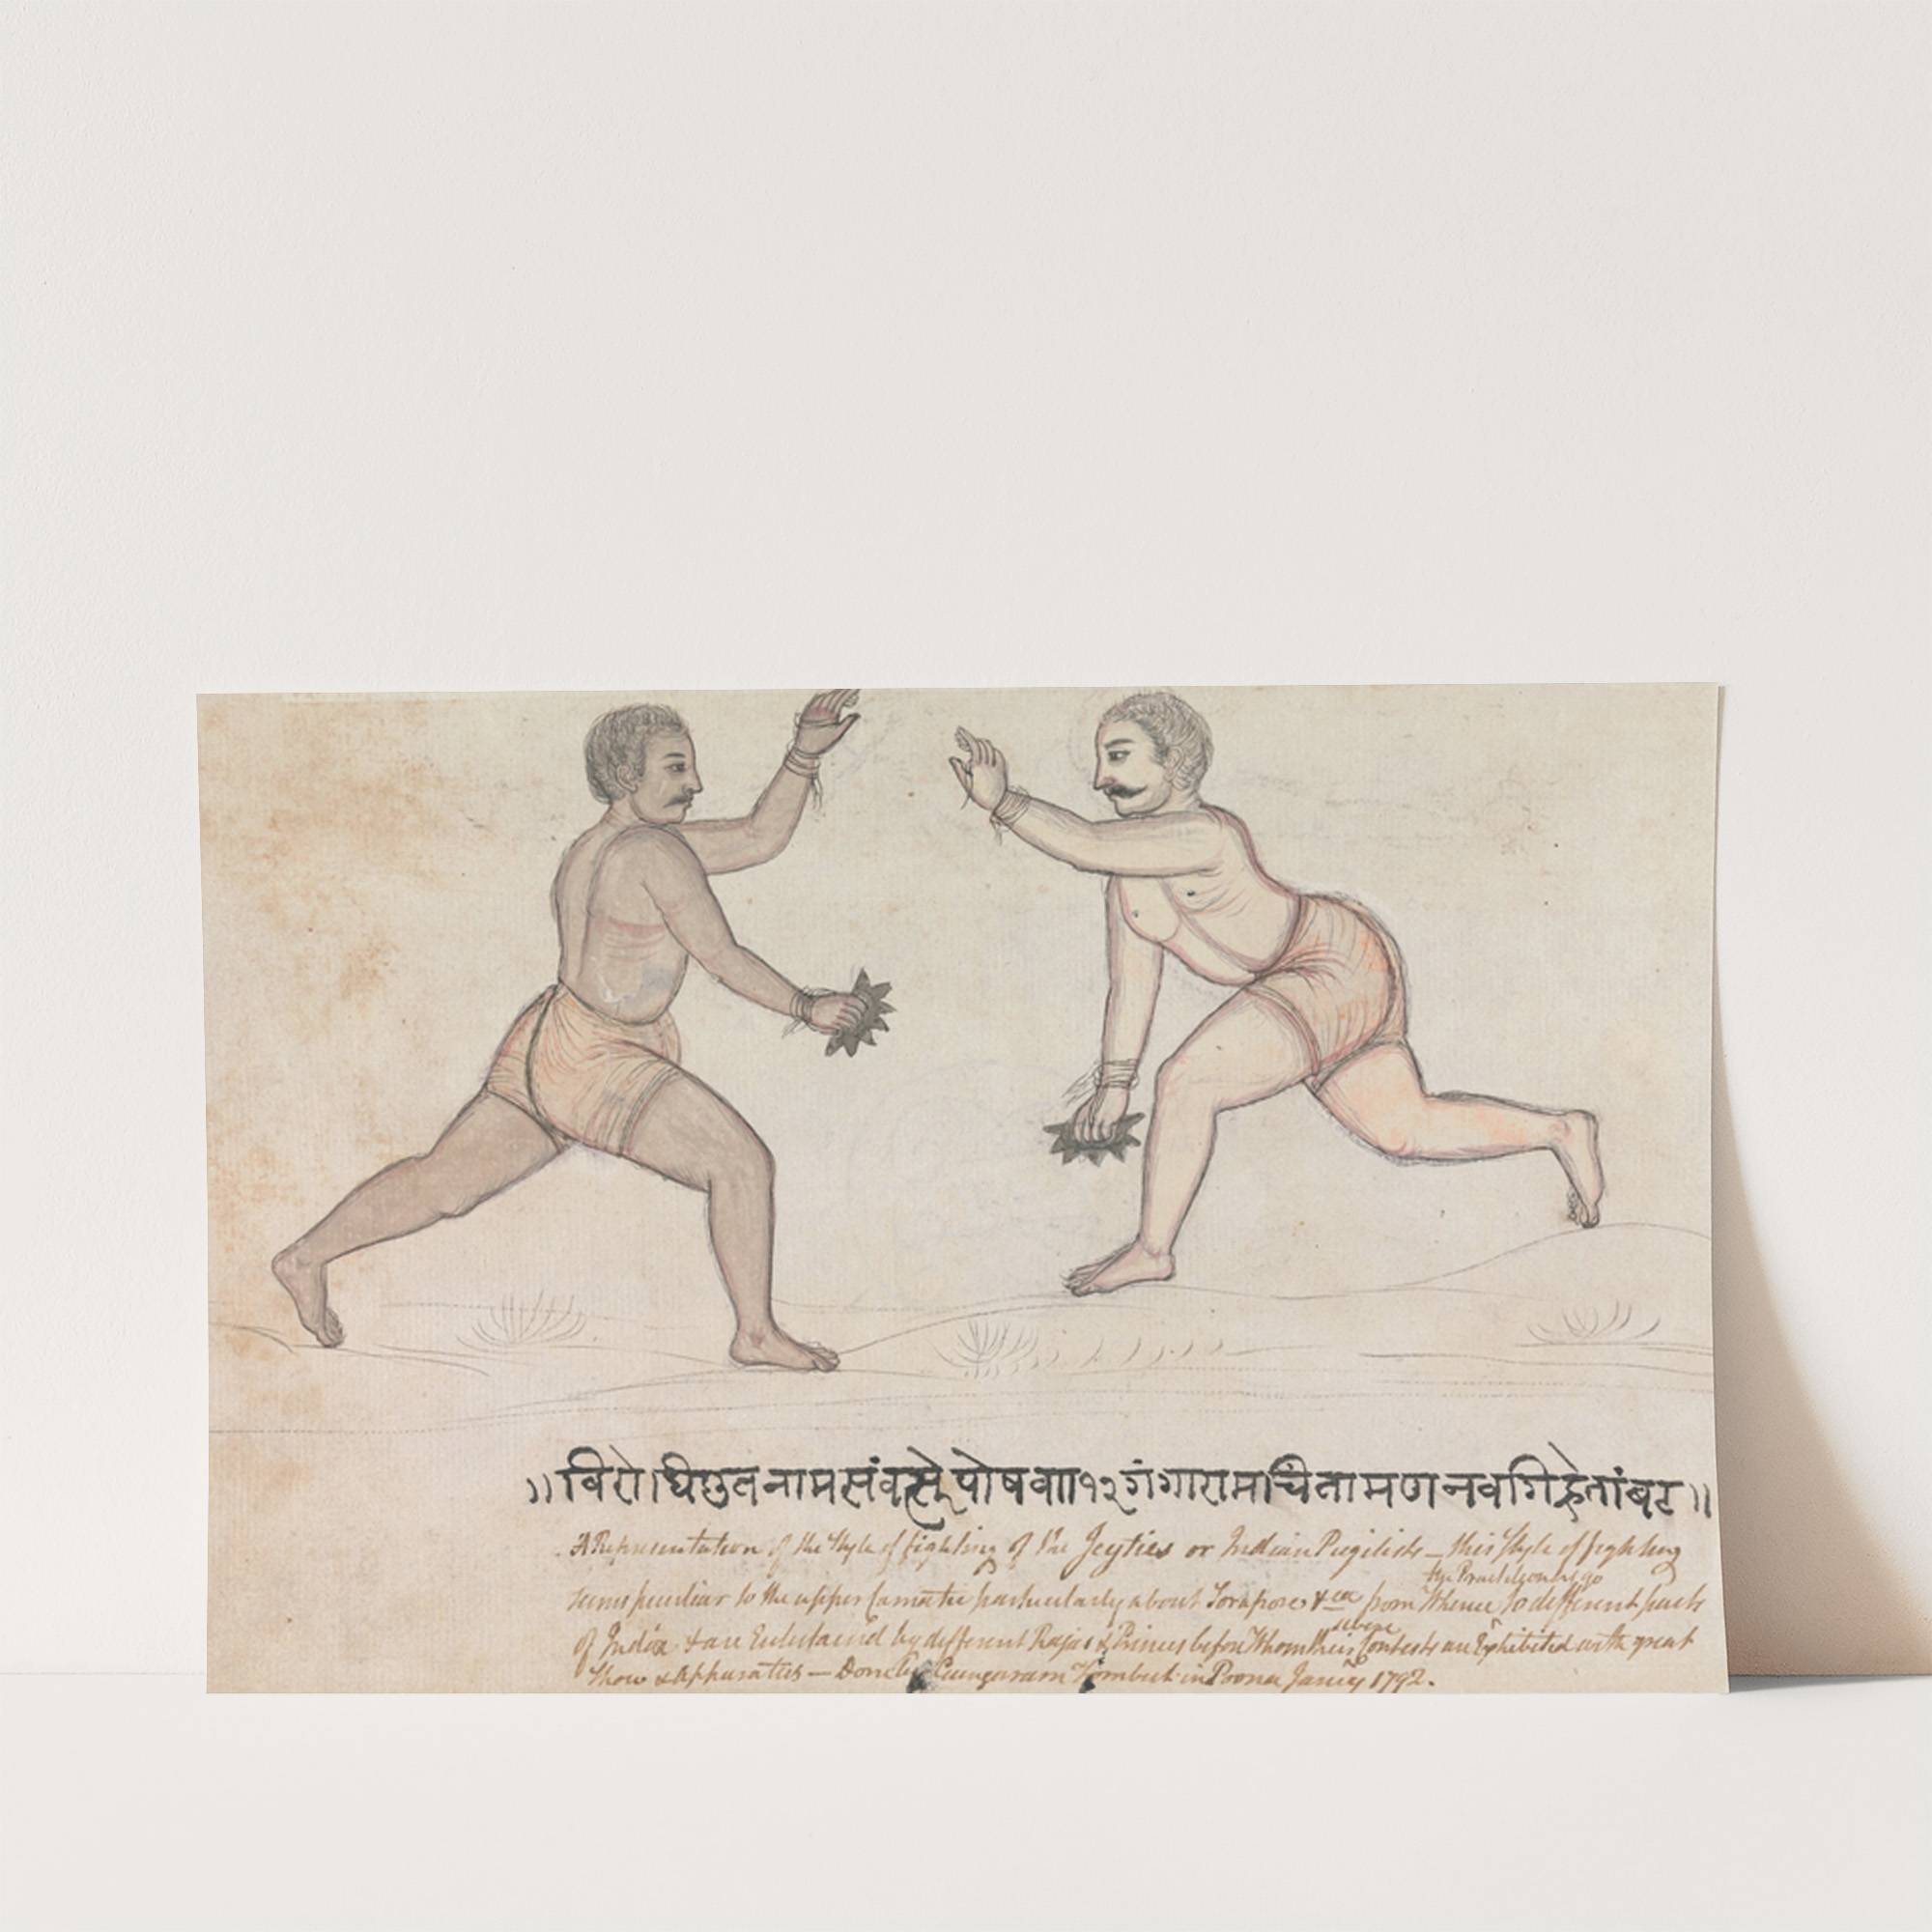 ॥ विरोधिछुतनामसंवत्सरे पोष व॥ १२ गंगाराम चिंतामण नवगिरे तांबट ॥
A Representation of the Style of fighting of the Jeyties or Indian Pugilists — this Style of fighting
seems peculiar to the upper Carnatic particularly about Sorapore &ca from Whence the Practitioners go to different parts
of India & are Entertained by different Rajas & Princes before Whom their Contests are Exhibited with great
Show & Apparatus — Done by Gungaram Tombut in Poona Janry 1792.